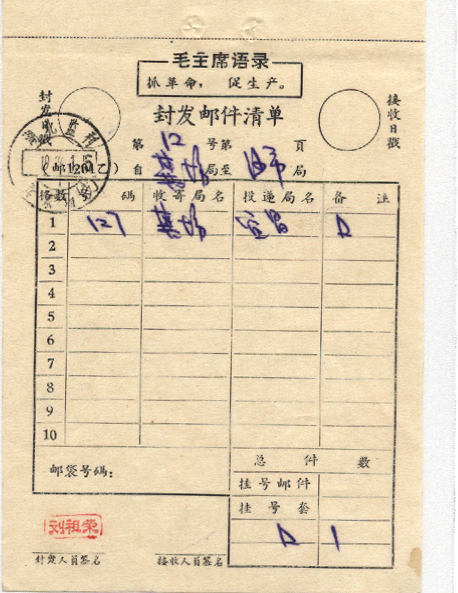 毛主席语录
抓革命，促生产。
封发邮件清单
封发日戳
接收日戳
湖北监利
第 12 号第 页
(邮1201乙) 自 局至 局
格数 号码 收寄局名 投递局名 备注
1 127 宜昌 D
2
3
4
5
6
7
8
9
10
邮袋号码：
总件数
挂号邮件
挂号套
D 1
刘祖荣
封发人员签名 接收人员签名